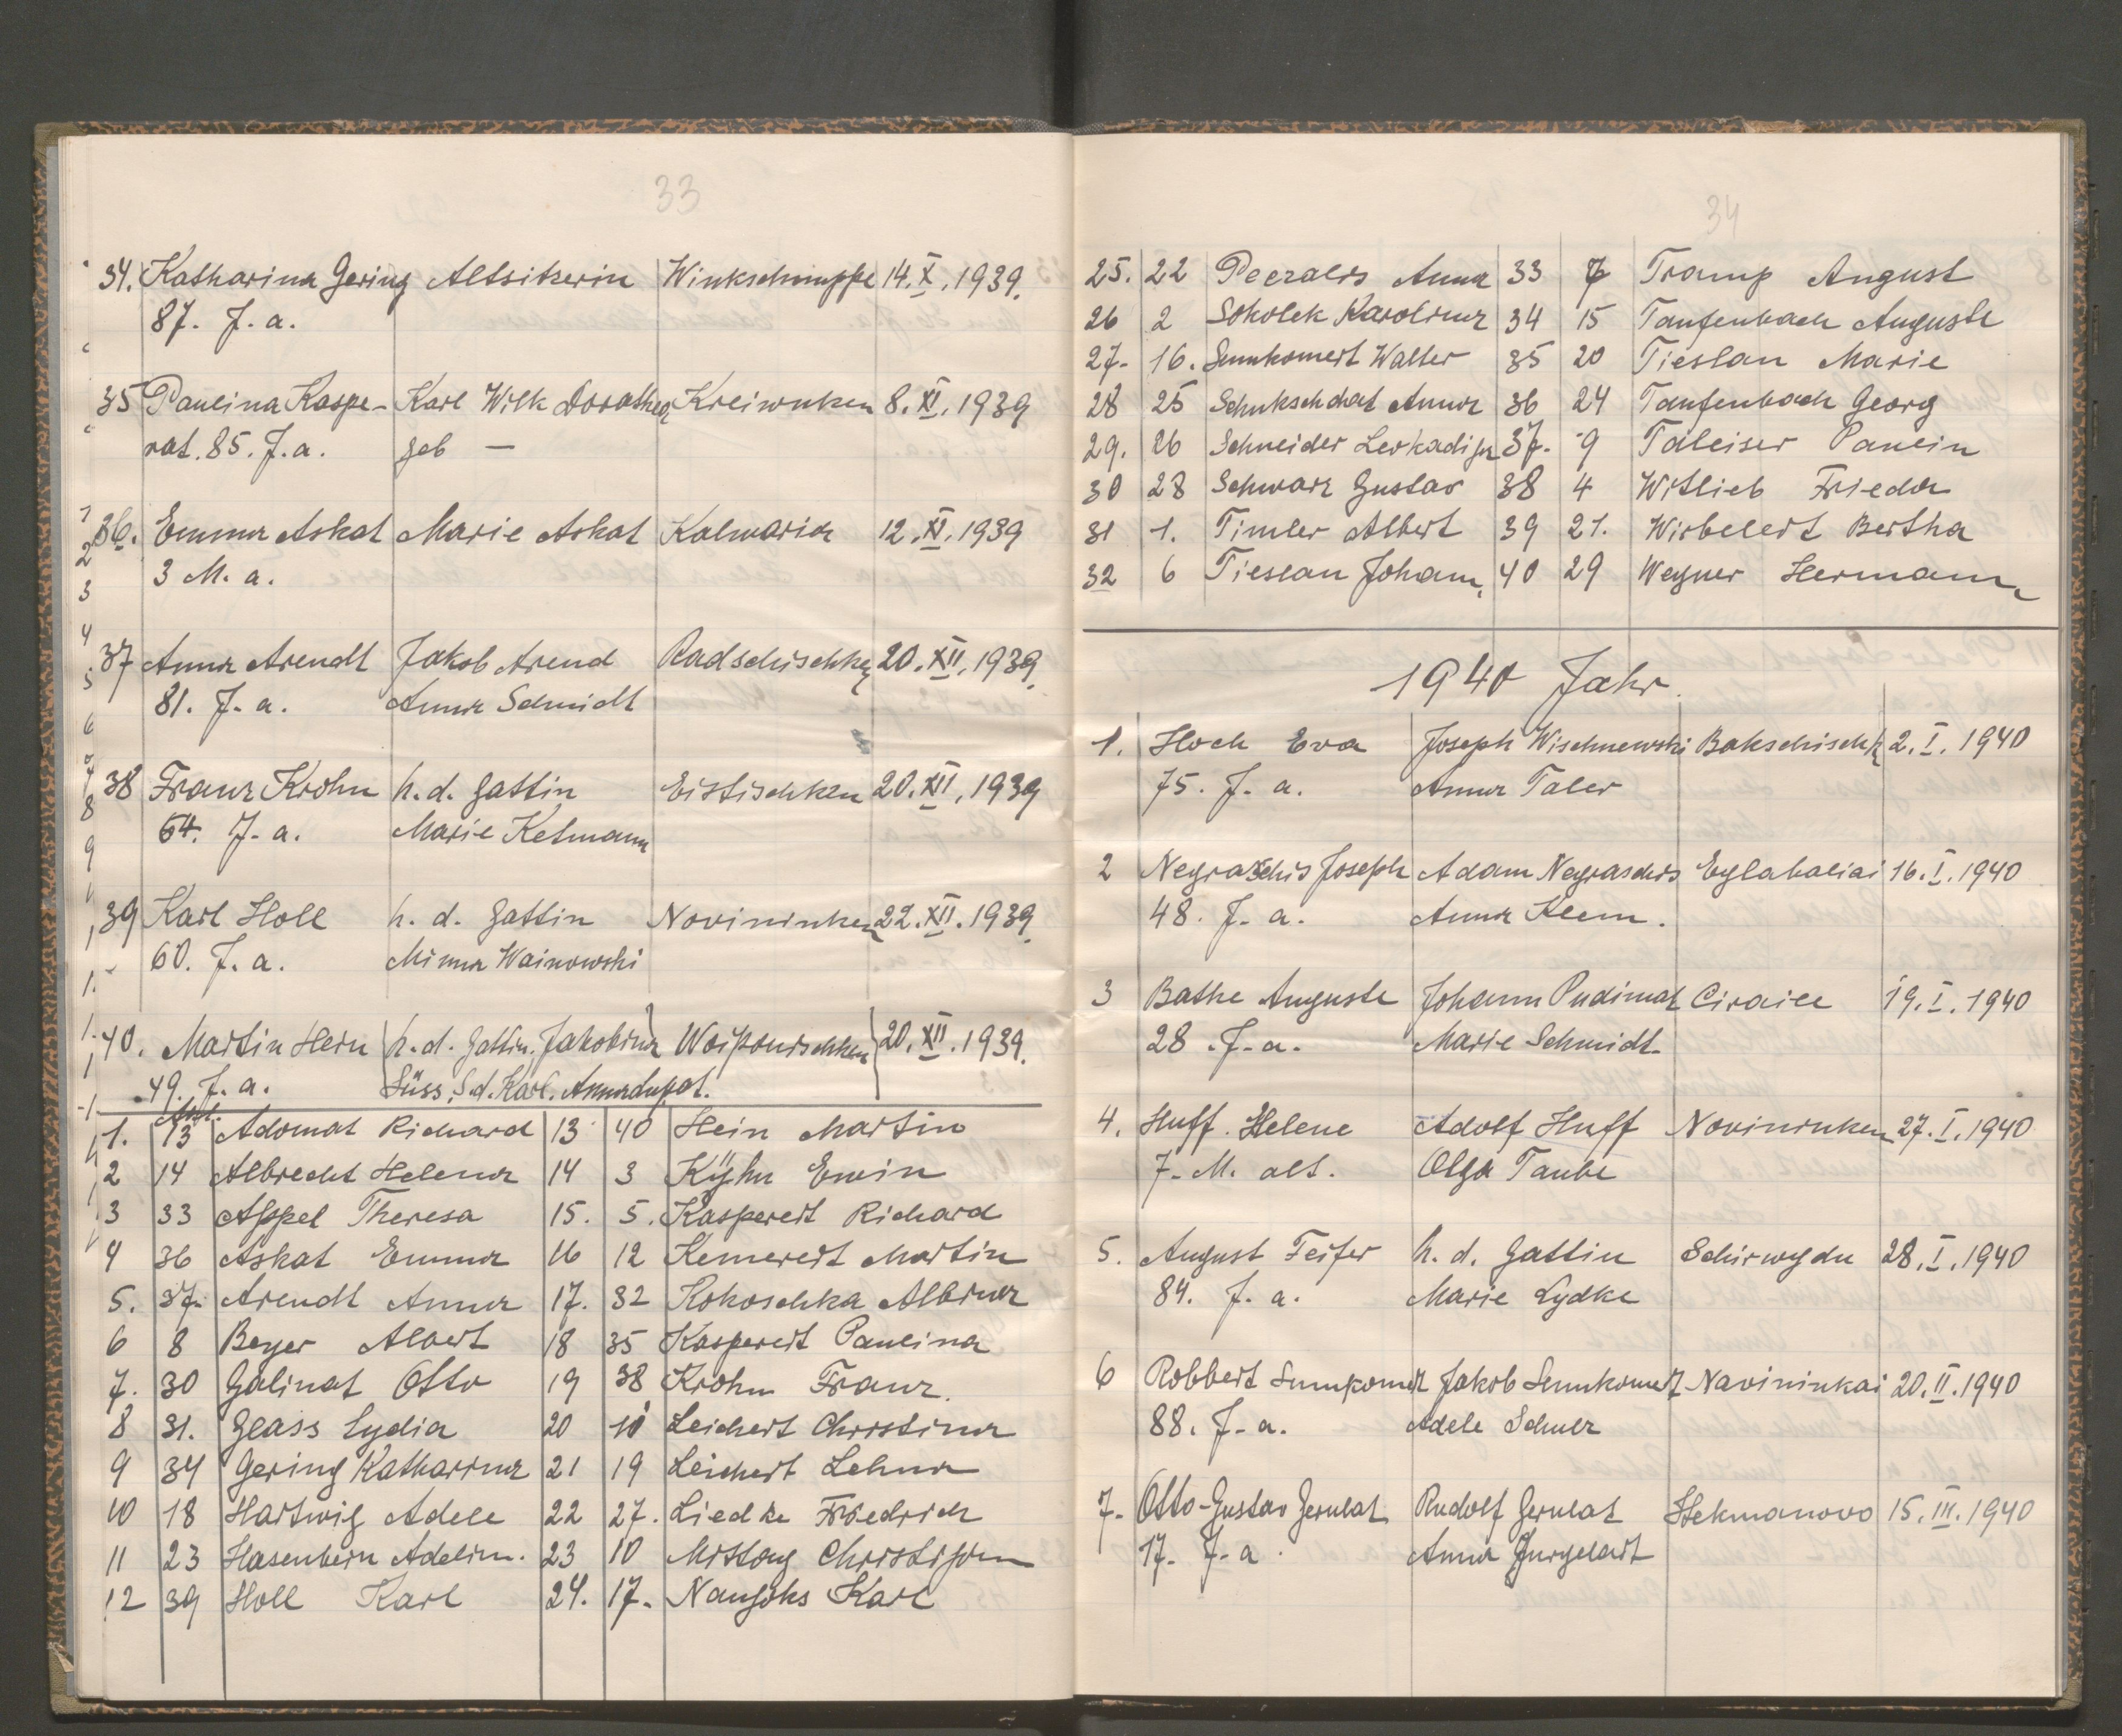 33
34. Katharina Gering Altsitzerin Winkschnuppe 14. X. 1939.
87. J. a.
35 Paulina Kaspe- Karl Wilk Dorothea Kreiwuken 8. XI. 1939
rat. 85. J. a. geb —
36. Emma Askat Marie Askat Kalwaria 12. XI. 1939
3 M. a.
37 Anna Arendt Jakob Arend Radschischken 20. XII. 1939.
81. J. a. Anna Schmidt
38 Franz Krohn h. d. Gattin Eistischken 20. XII. 1939
64. J. a. Marie Ketmann
39 Karl Holl h. d. Gattin Novininken 22. XII. 1939.
60. J. a. Minna Wainowski
40. Martin Hein h. d. Gattin. Jakobina 20. XII. 1939.
49. J. a. Süss, S. d. Karl. Anna
1. 13 Adomat Richard 13 40 Hein Martin
2 14 Albrecht Helena 14 3 Kÿhn Erwin
3 33 Appel Theresa 15. 5. Kaspereit Richard
4 36 Askat Emma 16 12 Kemereit Martin
5. 37. Arendt Anna 17. 32 Kokoschka Albina
6 8 Beyer Albert 18 35 Kaspereit Paulina
7. 30 Galinat Otto 19 38 Krohn Franz.
8 31. Glass Lydia 20 10 Leichert Christina
9 34 Gering Katharina 21 19 Leichert Lehna
10 18 Hartwig Adele 22 27. Liedke Friedrich
11 23 Hasenbein Adelin. 23 10 Mittag Christijan
12 39 Holl Karl 24. 17. Naujoks Karl
34
25. 22 Peczalis Anna 33 7 Tramp August
26 2 Sokolek Karolina 34 15 Taufenbach Auguste
27. 16. Sunkomert Walter 35 20 Tieslau Marie
28 25 Schukschdat Anna 36 24 Taufenbach Georg
29. 26 Schneider Leokadija 37. 9 Taleiser Paulin
30 28 Schwarz Gustav 38 4 Witlieb Frieda
31 1. Timler Albert 39 21. Wirbeleit Bertha
32 6 Tieslau Johann, 40 29 Weyner Hermann
1940 Jahr.
1. Hoch Eva Joseph Wischnewski Bakschischk 2. I. 1940
75. J. a. Anna Taler
2 Negraschis Joseph Adam Negraschis Eglabaliai 16. I. 1940
48. J. a. Anna Klem.
3 Bathe Auguste Johann Pudimat Ciraile 19. I. 1940
28. J. a. Marie Schmidt
4. Huff. Helene Adolf Huff Novininken 27. I. 1940
7. M. alt. Olga Taube
5. August Feifer h. d. Gattin Schirwydu 28. I. 1940
84. J. a. Marie Lydke
6 Robbert Sunkomert Jakob Sunkomert Navininkai 20. II. 1940
88. J. a. Adele Schulz
7. Otto-Gustav Gerulat Rudolf Gerulat Stekmanovo 15. III. 1940
17. J. a. Anna Jurgeleit